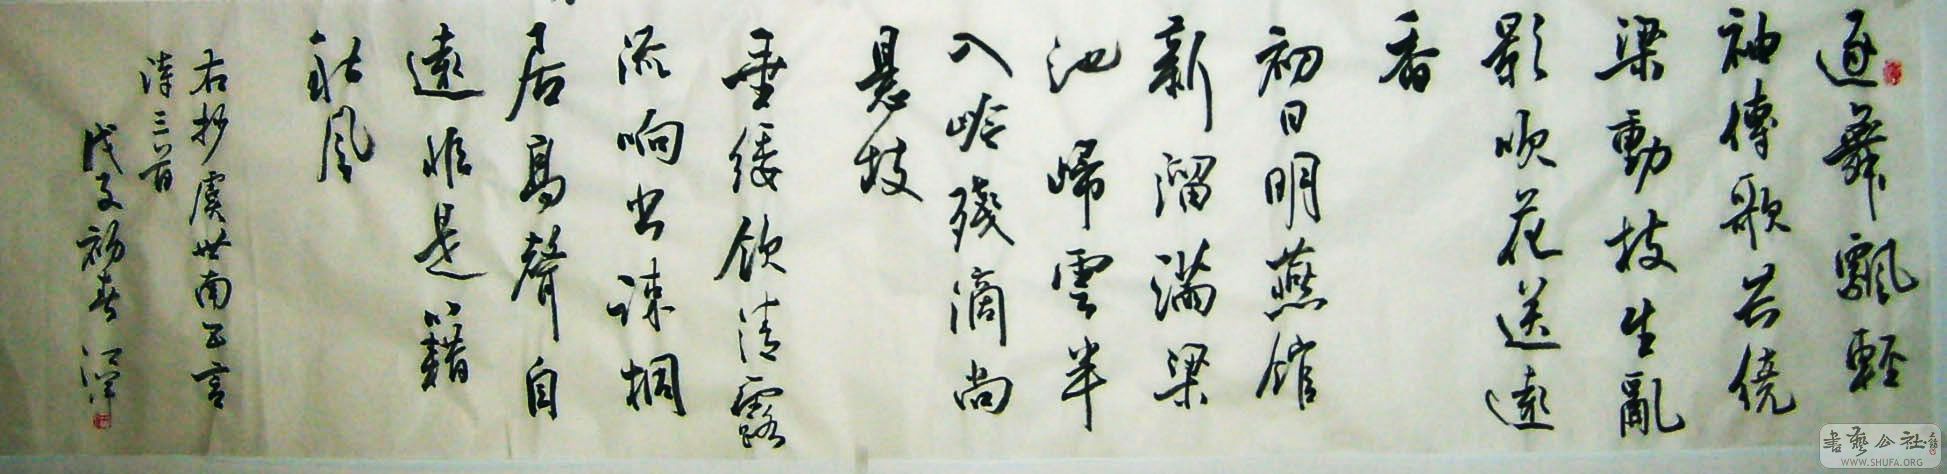 逐舞飄輕
袖傳歌共繞
梁動枝生亂
影吹花送遠
香
初日明燕館
新溜滿梁
池歸雲半
入嶺殘滴尚
懸枝
垂緌飲清露
流响出疎桐
居高聲自
遠非是藉
秋風
右抄虞世南五言
詩三首
戊子初春
書藝公社
WWW.SHUFA.ORG